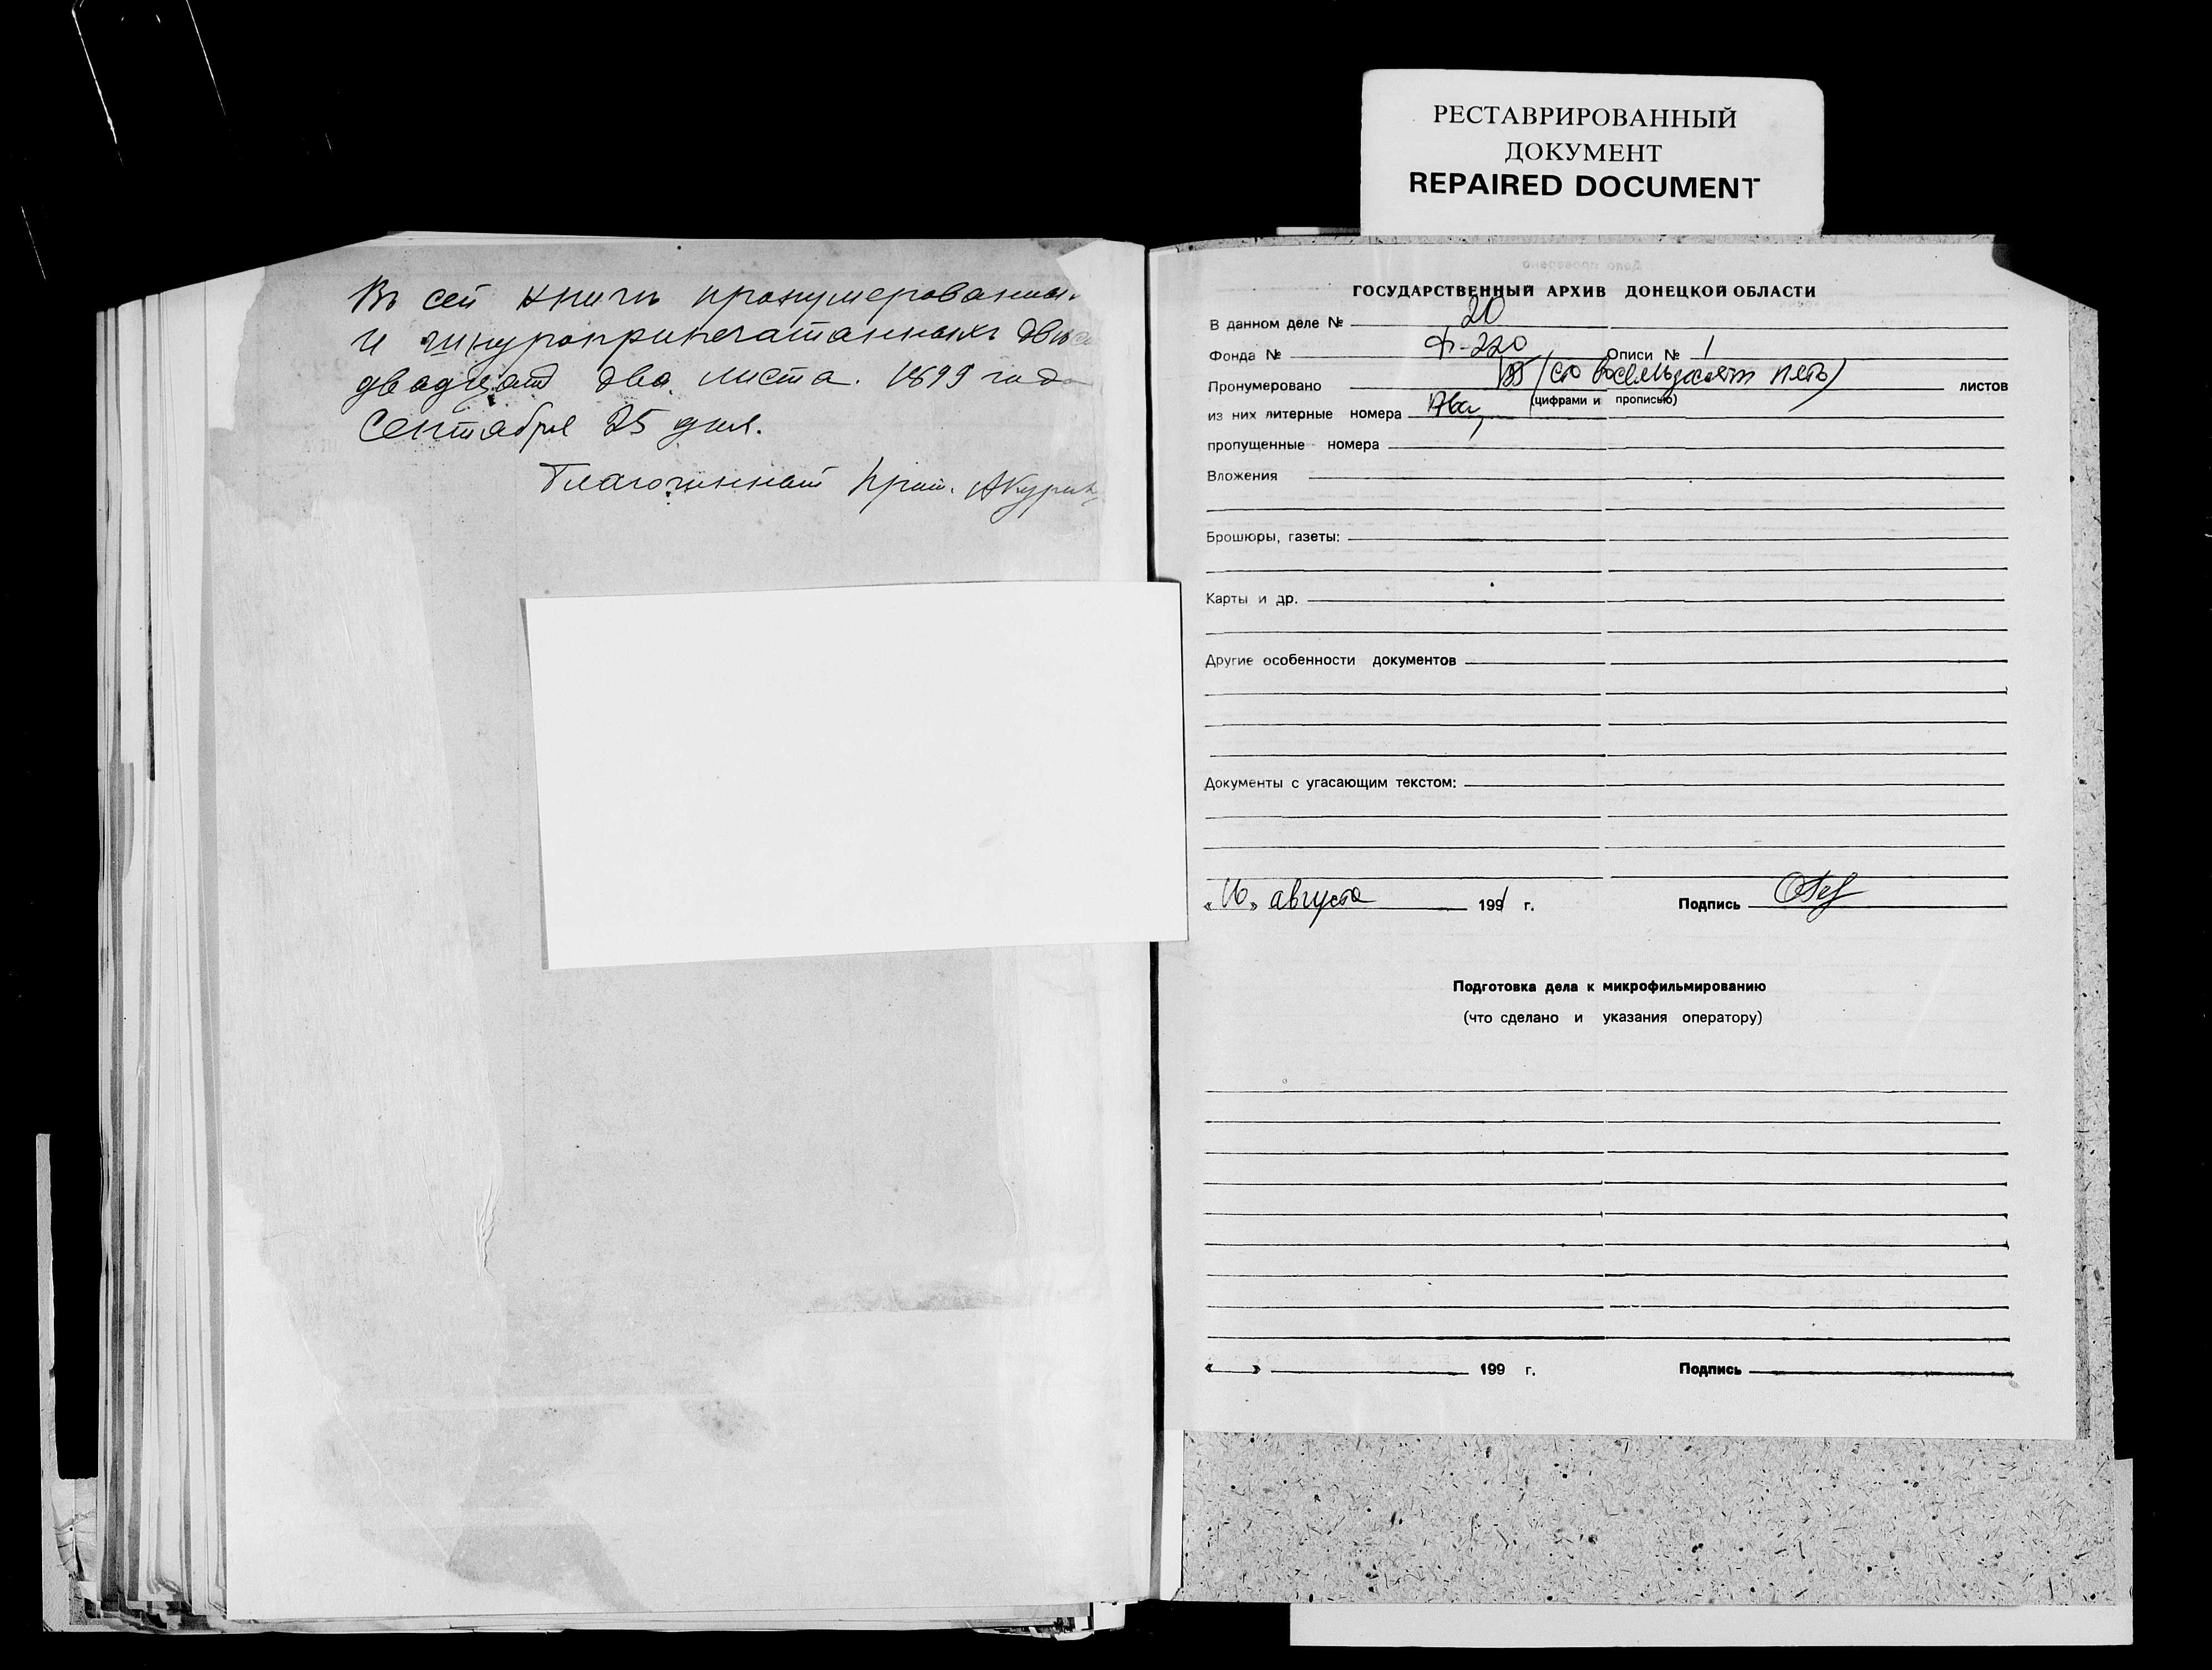 РЕСТАВРИРОВАННЫЙ
ДОКУМЕНТ
REPAIRED DOCUMENT
Въ сей книгѣ пронумерованныхъ
и шнуроприпечатанныхъ двѣсти
двадцать два листа. 1899 года
Сентября 25 дня.
Благочинный
ГОСУДАРСТВЕННЫЙ АРХИВ ДОНЕЦКОЙ ОБЛАСТИ
В данном деле № 20
Фонда № Ф-220 Описи № 1
Пронумеровано 185 (сто восемьдесят пять) листов
(цифрами и прописью)
из них литерные номера
пропущенные номера
Вложения
Брошюры, газеты:
Карты и др.
Другие особенности документов
Документы с угасающим текстом:
« » августа 1991 г. Подпись
Подготовка дела к микрофильмированию
(что сделано и указания оператору)
« » 199 г. Подпись